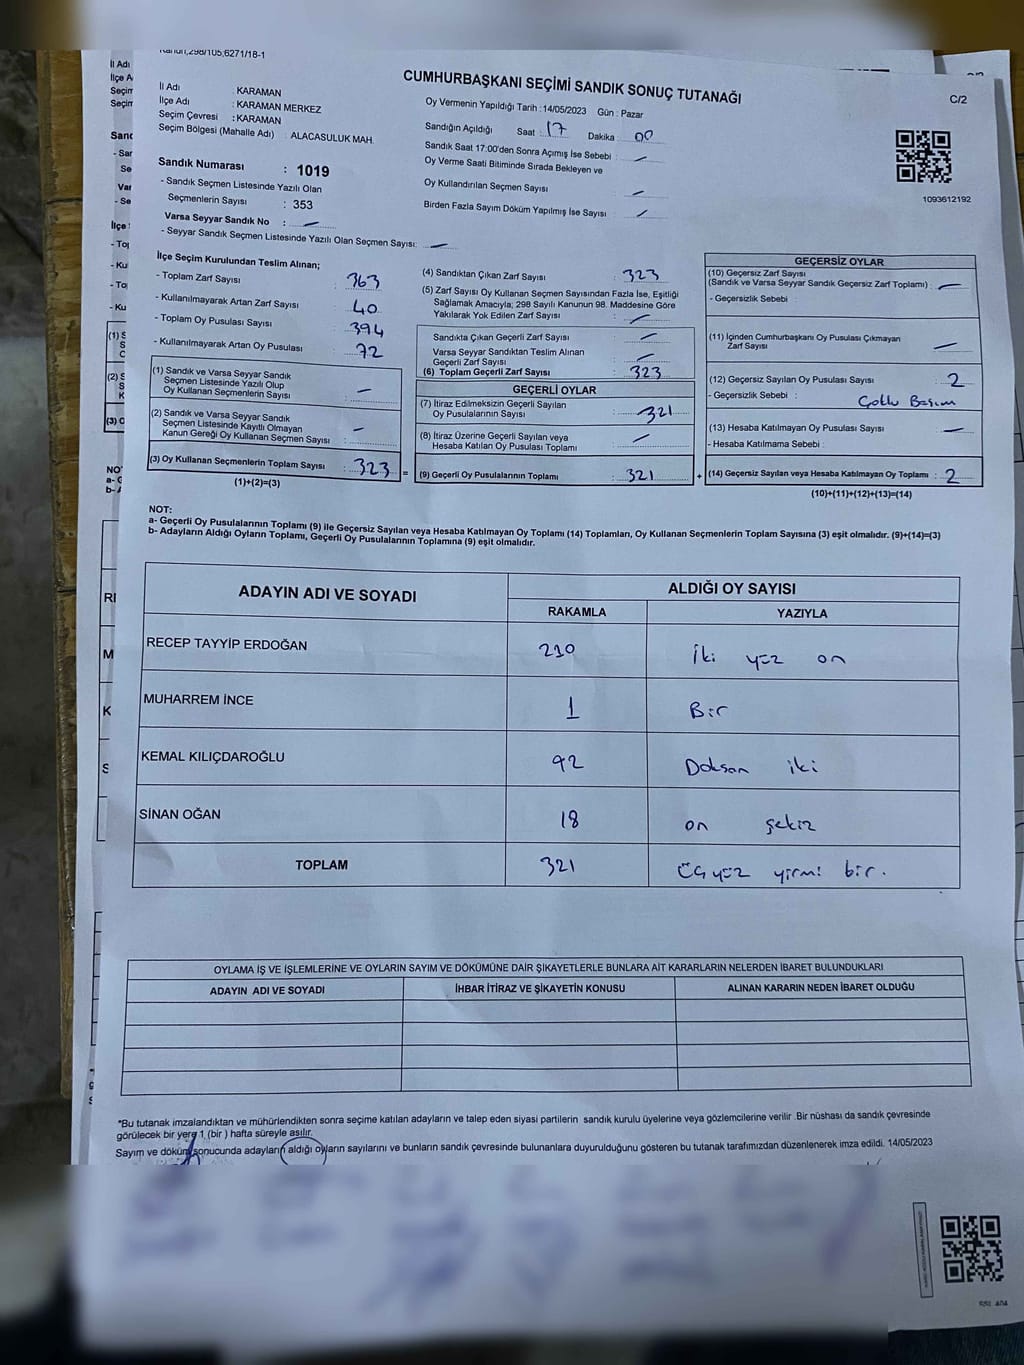 Kanun,298/105,6271/18-1
CUMHURBAŞKANI SEÇİMİ SANDIK SONUÇ TUTANAĞI
C/2
İl Adı : KARAMAN
İlçe Adı : KARAMAN MERKEZ
Seçim Çevresi : KARAMAN
Seçim Bölgesi (Mahalle Adı) : ALACASULUK MAH.
Sandık Numarası : 1019
- Sandık Seçmen Listesinde Yazılı Olan
Seçmenlerin Sayısı : 353
Varsa Seyyar Sandık No : —
- Seyyar Sandık Seçmen Listesinde Yazılı Olan Seçmen Sayısı: —
Oy Vermenin Yapıldığı Tarih : 14/05/2023 Gün : Pazar
Sandığın Açıldığı Saat : 17 Dakika : 00
Sandık Saat 17:00'den Sonra Açımış İse Sebebi : —
Oy Verme Saati Bitiminde Sırada Bekleyen ve
Oy Kullandırılan Seçmen Sayısı —
Birden Fazla Sayım Döküm Yapılmış İse Sayısı : —
1093612192
İlçe Seçim Kurulundan Teslim Alınan;
- Toplam Zarf Sayısı : 363
- Kullanılmayarak Artan Zarf Sayısı : 40
- Toplam Oy Pusulası Sayısı : 394
- Kullanılmayarak Artan Oy Pusulası : 72
(1) Sandık ve Varsa Seyyar Sandık
Seçmen Listesinde Yazılı Olup
Oy Kullanan Seçmenlerin Sayısı : —
(2) Sandık ve Varsa Seyyar Sandık
Seçmen Listesinde Kayıtlı Olmayan
Kanun Gereği Oy Kullanan Seçmen Sayısı : —
(3) Oy Kullanan Seçmenlerin Toplam Sayısı : 323
(1)+(2)=(3)
=
(4) Sandıktan Çıkan Zarf Sayısı : 323
(5) Zarf Sayısı Oy Kullanan Seçmen Sayısından Fazla İse, Eşitliği
Sağlamak Amacıyla; 298 Sayılı Kanunun 98. Maddesine Göre
Yakılarak Yok Edilen Zarf Sayısı : —
Sandıkta Çıkan Geçerli Zarf Sayısı : —
Varsa Seyyar Sandıktan Teslim Alınan
Geçerli Zarf Sayısı : —
(6) Toplam Geçerli Zarf Sayısı : 323
GEÇERLİ OYLAR
(7) İtiraz Edilmeksizin Geçerli Sayılan
Oy Pusulalarının Sayısı : 321
(8) İtiraz Üzerine Geçerli Sayılan veya
Hesaba Katılan Oy Pusulası Toplamı : —
(9) Geçerli Oy Pusulalarının Toplamı : 321
+
GEÇERSİZ OYLAR
(10) Geçersiz Zarf Sayısı
(Sandık ve Varsa Seyyar Sandık Geçersiz Zarf Toplamı) : —
- Geçersizlik Sebebi :
(11) İçinden Cumhurbaşkanı Oy Pusulası Çıkmayan
Zarf Sayısı : —
(12) Geçersiz Sayılan Oy Pusulası Sayısı : 2
- Geçersizlik Sebebi : Çoklu Basım
(13) Hesaba Katılmayan Oy Pusulası Sayısı : —
- Hesaba Katılmama Sebebi :
(14) Geçersiz Sayılan veya Hesaba Katılmayan Oy Toplamı : 2
(10)+(11)+(12)+(13)=(14)
NOT:
a- Geçerli Oy Pusulalarının Toplamı (9) ile Geçersiz Sayılan veya Hesaba Katılmayan Oy Toplamı (14) Toplamları, Oy Kullanan Seçmenlerin Toplam Sayısına (3) eşit olmalıdır. (9)+(14)=(3)
b- Adayların Aldığı Oyların Toplamı, Geçerli Oy Pusulalarının Toplamına (9) eşit olmalıdır.
ADAYIN ADI VE SOYADI ALDIĞI OY SAYISI
RAKAMLA YAZIYLA
RECEP TAYYİP ERDOĞAN 210 İki yüz on
MUHARREM İNCE 1 Bir
KEMAL KILIÇDAROĞLU 92 Doksan iki
SİNAN OĞAN 18 on sekiz
TOPLAM 321 Üçyüz yirmi bir.
OYLAMA İŞ VE İŞLEMLERİNE VE OYLARIN SAYIM VE DÖKÜMÜNE DAİR ŞİKAYETLERLE BUNLARA AİT KARARLARIN NELERDEN İBARET BULUNDUKLARI
ADAYIN ADI VE SOYADI İHBAR İTİRAZ VE ŞİKAYETİN KONUSU ALINAN KARARIN NEDEN İBARET OLDUĞU
*Bu tutanak imzalandıktan ve mühürlendikten sonra seçime katılan adayların ve talep eden siyasi partilerin sandık kurulu üyelerine veya gözlemcilerine verilir .Bir nüshası da sandık çevresinde
görülecek bir yere 1 (bir ) hafta süreyle asılır.
Sayım ve döküm sonucunda adayların aldığı oyların sayılarını ve bunların sandık çevresinde bulunanlara duyurulduğunu gösteren bu tutanak tarafımızdan düzenlenerek imza edildi. 14/05/2023